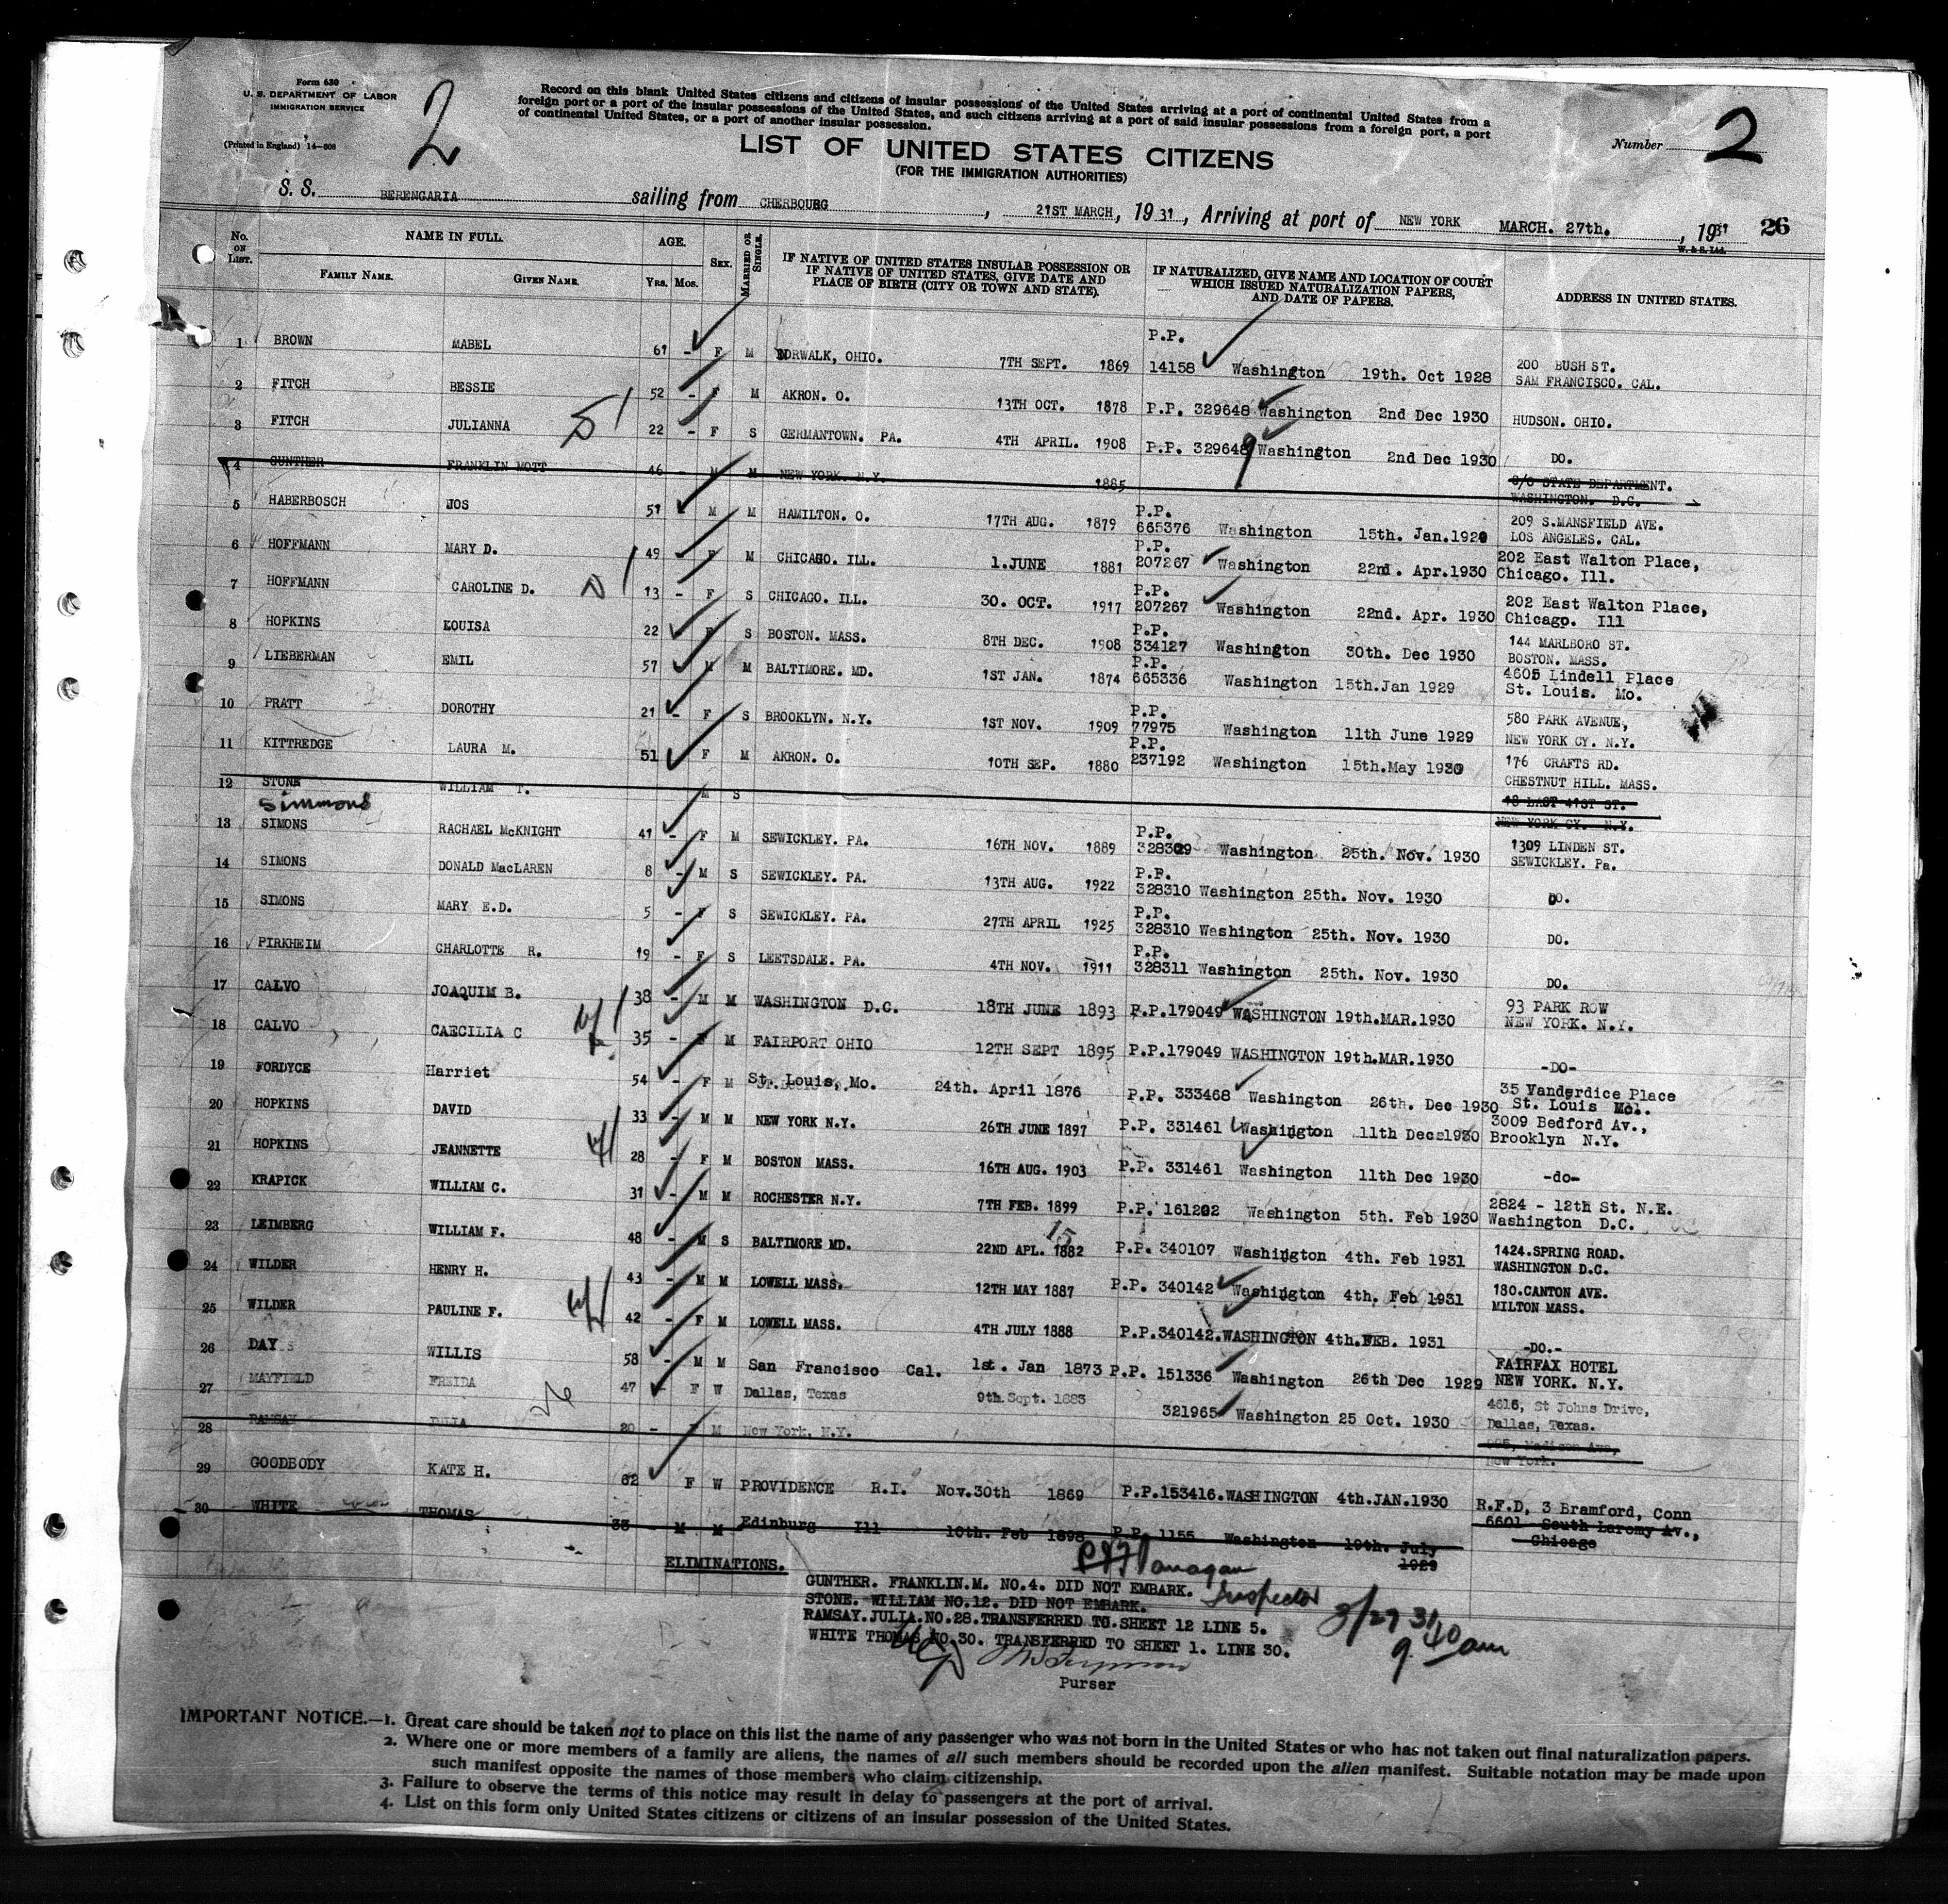 Form 630
U. S. DEPARTMENT OF LABOR
IMMIGRATION SERVICE
(Printed in England) 14—608
2
Record on this blank United States citizens and citizens of insular possessions of the United States arriving at a port of continental United States from a
foreign port or a port of the insular possessions of the United States, and such citizens arriving at a port of said insular possessions from a foreign port, a port
of continental United States, or a port of another insular possession.
LIST OF UNITED STATES CITIZENS
(FOR THE IMMIGRATION AUTHORITIES)
Number 2
S. S. BERENGARIA sailing from CHERBOURG, 21ST MARCH, 1931, Arriving at port of NEW YORK MARCH. 27th., 1931 26
W. & S. Ltd.
No. ON LIST. NAME IN FULL. FAMILY NAME. GIVEN NAME. AGE. YRS. MOS. SEX. MARRIED OR SINGLE. IF NATIVE OF UNITED STATES INSULAR POSSESSION OR IF NATIVE OF UNITED STATES, GIVE DATE AND PLACE OF BIRTH (CITY OR TOWN AND STATE). IF NATURALIZED, GIVE NAME AND LOCATION OF COURT WHICH ISSUED NATURALIZATION PAPERS, AND DATE OF PAPERS. ADDRESS IN UNITED STATES.
1 BROWN MABEL 61 - F M NORWALK, OHIO. 7TH SEPT. 1869 P.P. 14158 Washington 19th. Oct 1928 200 BUSH ST. SAM FRANCISCO. CAL.
2 FITCH BESSIE 52 - F M AKRON. O. 13TH OCT. 1878 P.P. 329648 Washington 2nd Dec 1930 HUDSON. OHIO.
3 FITCH JULIANNA 22 - F S GERMANTOWN. PA. 4TH APRIL. 1908 P.P. 329648 Washington 2nd Dec 1930 DO.
4 GUNTHER FRANKLIN MOTT 46 - M M NEW YORK. N.Y. 1885 C/O STATE DEPARTMENT. WASHINGTON. D.C.
5 HABERBOSCH JOS 51 M M HAMILTON. O. 17TH AUG. 1879 P.P. 665376 Washington 15th. Jan.1929 209 S.MANSFIELD AVE. LOS ANGELES. CAL.
6 HOFFMANN MARY D. 49 F M CHICAGO. ILL. 1.JUNE 1881 P.P. 207267 Washington 22nd. Apr.1930 202 East Walton Place, Chicago. Ill.
7 HOFFMANN CAROLINE D. 13 - F S CHICAGO. ILL. 30. OCT. 1917 P.P. 207267 Washington 22nd. Apr. 1930 202 East Walton Place, Chicago. Ill
8 HOPKINS LOUISA 22 F S BOSTON. MASS. 8TH DEC. 1908 P.P. 334127 Washington 30th. Dec 1930 144 MARLBORO ST. BOSTON. MASS.
9 LIEBERMAN EMIL 57 M M BALTIMORE. MD. 1ST JAN. 1874 P.P. 665336 Washington 15th.Jan 1929 4605 Lindell Place St. Louis. Mo.
10 PRATT DOROTHY 21 - F S BROOKLYN. N.Y. 1ST NOV. 1909 P.P. 77975 Washington 11th June 1929 580 PARK AVENUE, NEW YORK CY. N.Y.
11 KITTREDGE LAURA M. 51 F M AKRON. O. 10TH SEP. 1880 P.P. 237192 Washington 15th.May 1930 176 CRAFTS RD. CHESTNUT HILL. MASS.
12 STONE WILLIAM T. M S 18 EAST 41ST ST. NEW YORK CY. N.Y.
Simmons
13 SIMONS RACHAEL McKNIGHT 41 - F M SEWICKLEY. PA. 16TH NOV. 1889 P.P. 328309 Washington 25th. Nov. 1930 1309 LINDEN ST. SEWICKLEY. Pa.
14 SIMONS DONALD MacLAREN 8 - M S SEWICKLEY. PA. 13TH AUG. 1922 P.P. 328310 Washington 25th. Nov. 1930 DO.
15 SIMONS MARY E.D. 5 - F S SEWICKLEY. PA. 27TH APRIL 1925 P.P. 328310 Washington 25th. Nov. 1930 DO.
16 PIRKHEIM CHARLOTTE R. 19 - F S LEETSDALE. PA. 4TH NOV. 1911 P.P. 328311 Washington 25th. Nov. 1930 DO.
17 CALVO JOAQUIM B. 38 - M M WASHINGTON D.C. 18TH JUNE 1893 P.P.179049 WASHINGTON 19th.MAR.1930 93 PARK ROW NEW YORK. N.Y.
18 CALVO CAECILIA C 35 - F M FAIRPORT OHIO 12TH SEPT 1895 P.P.179049 WASHINGTON 19th.MAR.1930 -DO-
19 FORDYCE Harriet 54 - F M St. Louis, Mo. 24th. April 1876 P.P. 333468 Washington 26th. Dec 1930 35 Vanderdice Place St. Louis Mo.
20 HOPKINS DAVID 33 - M M NEW YORK N.Y. 26TH JUNE 1897 P.P. 331461 Washington 11th Dec 1930 3009 Bedford Av., Brooklyn N.Y.
21 HOPKINS JEANNETTE 28 - F M BOSTON MASS. 16TH AUG. 1903 P.P. 331461 Washington 11th Dec 1930 -do-
22 KRAPICK WILLIAM C. 31 - M M ROCHESTER N.Y. 7TH FEB. 1899 P.P. 161202 Washington 5th. Feb 1930 2824 - 12th St. N.E. Washington D.C.
23 LEIMBERG WILLIAM F. 48 M S BALTIMORE MD. 22ND APL. 1882 15 P.P. 340107 Washington 4th. Feb 1931 1424.SPRING ROAD. WASHINGTON D.C.
24 WILDER HENRY H. 43 - M M LOWELL MASS. 12TH MAY 1887 P.P. 340142 Washington 4th. Feb 1931 180.CANTON AVE. MILTON MASS.
25 WILDER PAULINE F. 42 - F M LOWELL MASS. 4TH JULY 1888 P.P.340142.WASHINGTON 4th.FEB. 1931 -DO.-
26 DAY WILLIS 58 - M M San Francisco Cal. 1st. Jan 1873 P.P. 151336 Washington 26th Dec 1929 FAIRFAX HOTEL NEW YORK. N.Y.
27 MAYFIELD FREIDA 47 F W Dallas, Texas 9th.Sept. 1883 321965 Washington 25 Oct. 1930 4616, St Johns Drive, Dallas, Texas.
28 RAMSAY JULIA 20 - F M New York. N.Y. Madison Ave, New York.
29 GOODBODY KATE H. 62 F W PROVIDENCE R.I. Nov.30th 1869 P.P.153416.WASHINGTON 4th.JAN.1930 R.F.D, 3 Bramford, Conn
30 WHITE THOMAS 33 - M M Edinburg Ill 10th. Feb 1898 P.P. 1155 Washington 19th. July 1929 6601 South Laromy Av., Chicago
ELIMINATIONS.
GUNTHER. FRANKLIN.M. NO.4. DID NOT EMBARK.
Inspector
STONE. WILLIAM NO.12. DID NOT EMBARK.
RAMSAY.JULIA.NO.28.TRANSFERRED TO.SHEET 12 LINE 5.
WHITE THOMAS NO.30. TRANSFERRED TO SHEET 1. LINE 30.
3/27 31
9 40 am
Purser
IMPORTANT NOTICE.—1. Great care should be taken not to place on this list the name of any passenger who was not born in the United States or who has not taken out final naturalization papers.
2. Where one or more members of a family are aliens, the names of all such members should be recorded upon the alien manifest. Suitable notation may be made upon
such manifest opposite the names of those members who claim citizenship.
3. Failure to observe the terms of this notice may result in delay to passengers at the port of arrival.
4. List on this form only United States citizens or citizens of an insular possession of the United States.